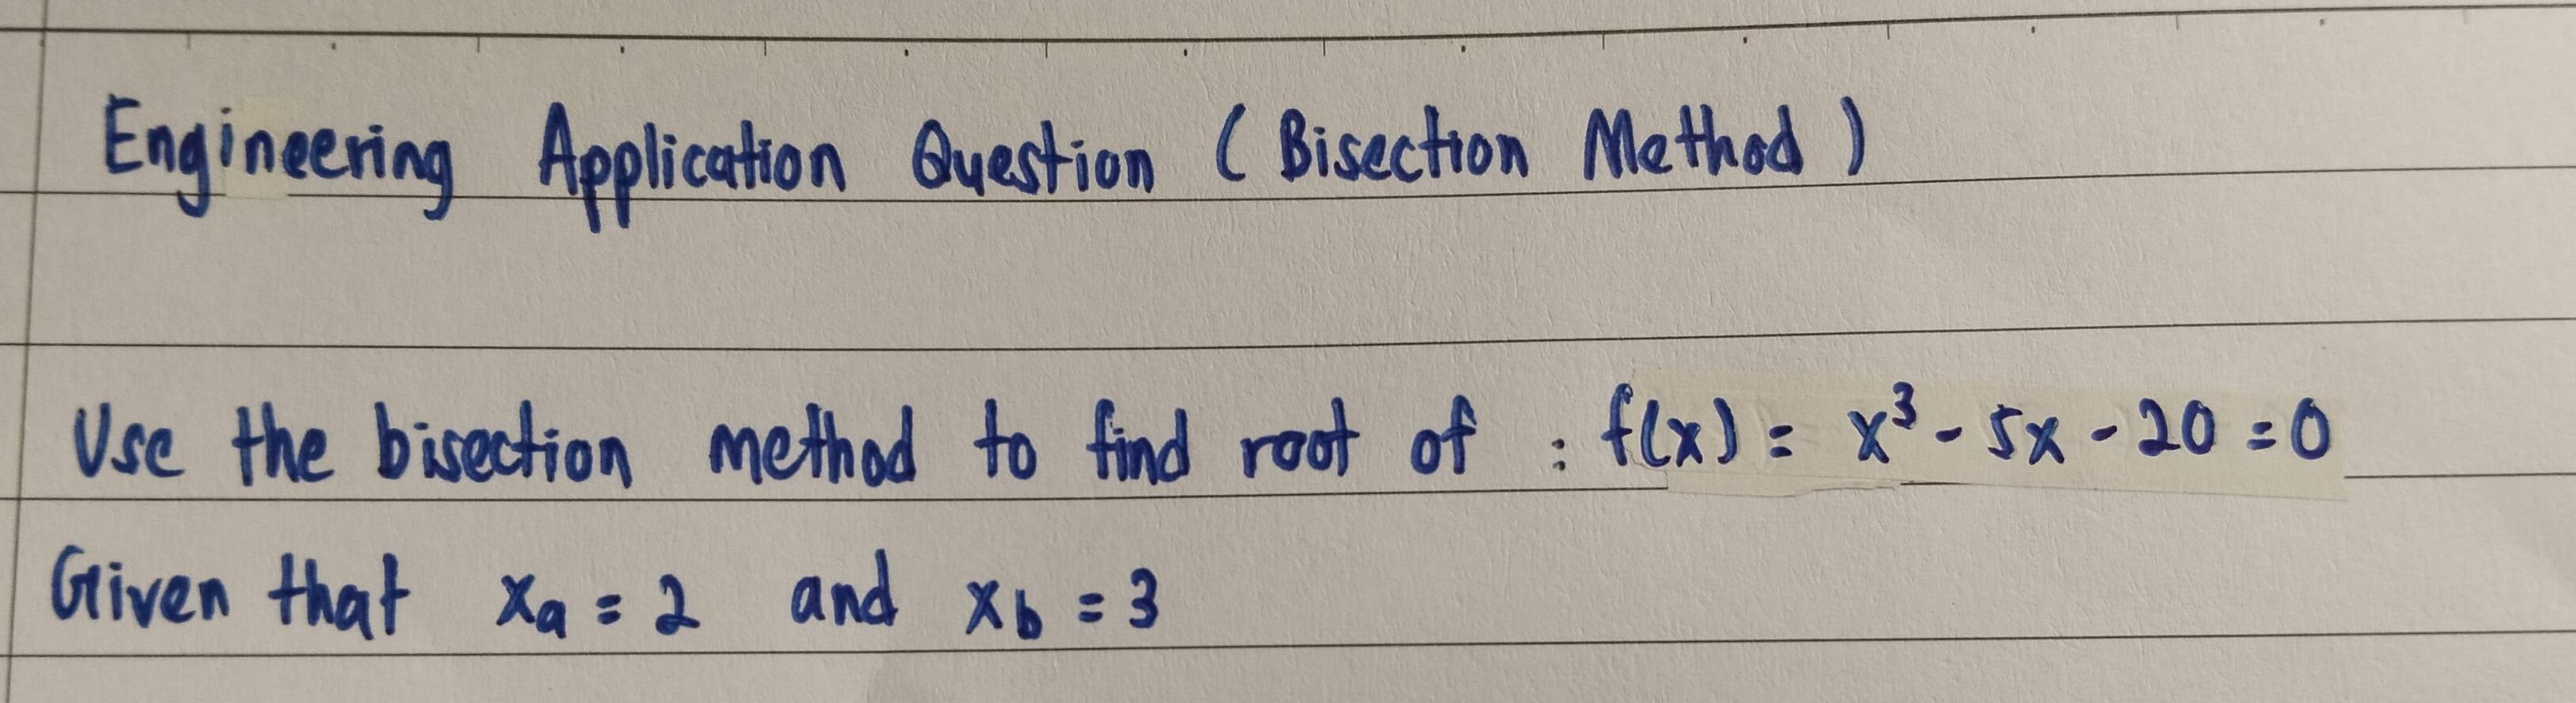 Engineering Application Question ( Bisection Method )
Use the bisection method to find root of : f(x) = x³ - 5x - 20 = 0
Given that xₐ = 2 and x_b = 3